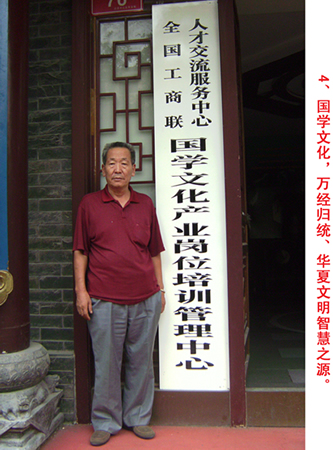 70
人才交流服务中心
全国工商联
国学文化产业岗位培训管理中心
4、国学文化，万经归统、华夏文明智慧之源。